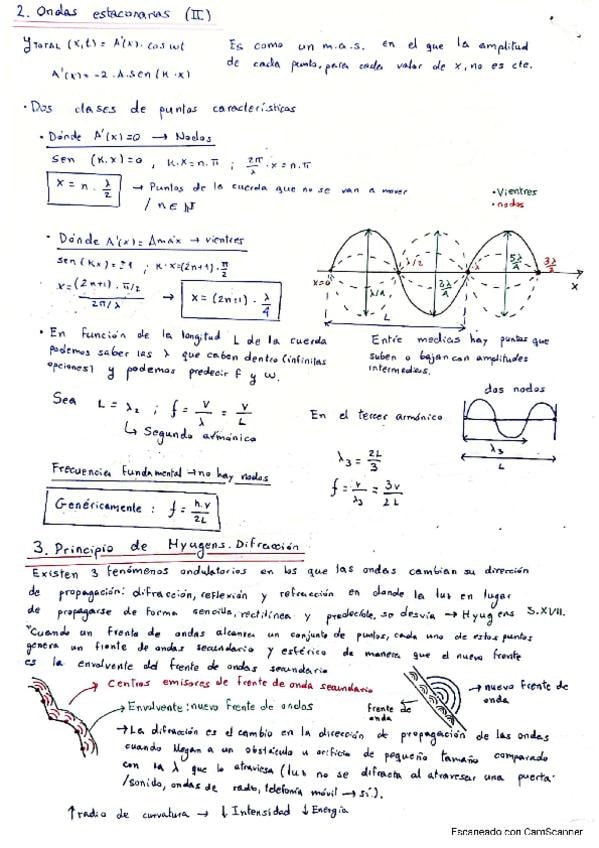 2. Ondas estacionarias (II)
y TOTAL (x,t) = A'(x) · cos ωt
Es como un m.a.s. en el que la amplitud
A'(x) = -2·A·sen (K·x)
de cada punto, para cada valor de x, no es cte.
· Dos clases de puntos característicos
· Dónde A'(x)=0 → Nodos
sen (K·x)=0 , K·x=n·π ; 2π/λ · x = n·π
x = n · λ/2 → Puntos de la cuerda que no se van a mover
/ n ∈ N
· Vientres
· nodos
· Dónde A'(x) = Amáx → vientres
sen (Kx)=±1 ; K·x=(2n+1)·π/2
x = (2n+1)·π/2 / 2π/λ → x = (2n+1) · λ/4
x=0 λ/4 λ/2 3λ/4 λ 5λ/4 3λ/2 x
L
· En función de la longitud L de la cuerda
podemos saber las λ que caben dentro (infinitas
opciones) y podemos predecir f y ω.
Entre medias hay puntos que
suben o bajan con amplitudes
intermedias.
Sea L = λ₂ ; f = v/λ = v/L
↳ Segundo armónico
En el tercer armónico
dos nodos
λ₃
L
λ₃ = 2L/3
f = v/λ₃ = 3v/2L
Frecuencia fundamental → no hay nodos
Genéricamente : f = n·v/2L
3. Principio de Hyugens. Difracción
Existen 3 fenómenos ondulatorios en los que las ondas cambian su dirección
de propagación: difracción, reflexión y refracción en donde la luz en lugar
de propagarse de forma sencilla, rectilínea y predecible, se desvía → Hyugens S.XVII.
"Cuando un frente de ondas alcanza un conjunto de puntos, cada uno de estos puntos
genera un frente de ondas secundario y esférico de manera que el nuevo frente
es la envolvente del frente de ondas secundario
→ Centros emisores de frente de onda secundario
→ Envolvente: nuevo frente de ondas
frente de
onda
→ nuevo frente de
onda
→ La difracción es el cambio en la dirección de propagación de las ondas
cuando llegan a un obstáculo u orificio de pequeño tamaño comparado
con la λ que lo atraviesa (luz no se difracta al atravesar una puerta
/sonido, ondas de radio, telefonía móvil → sí).
↑ radio de curvatura → ↓ Intensidad ↓ Energía
Escaneado con CamScanner